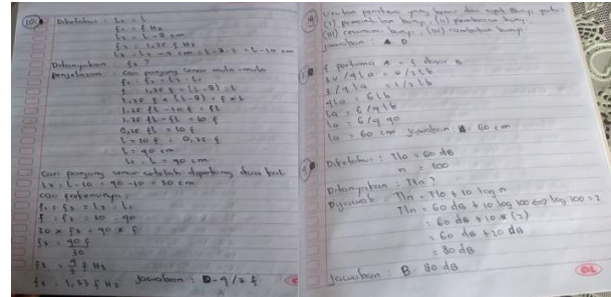 Diketahui : L₁ = L
f₁ = f Hz
L₂ = L - 8 cm
f₂ = 1,25 f Hz
L₃ = L₂ - 2 cm = L-8-2 = L-10 cm
Ditanyakan : f₃ ?
Penyelesaian : cari panjang senar mula-mula
f₁ : f₂ = L₂ : L₁
1,25 f × (L-8) = f × L
1,25 fL - 10 f = fL
1,25 fL - fL = 10 f
0,25 fL = 10 f
L = 10 f : 0,25 f
L = 40 cm
L₁ = L = 40 cm
Cari panjang senar setelah dipotong dua kali
L₃ = L - 10 = 40 - 10 = 30 cm
cari frekuensinya :
f₁ : f₃ = L₃ : L₁
f : f₃ = 30 : 40
30 × f₃ = 40 × f
f₃ = 40 f
30
f₃ = 4 f Hz
3
f₃ = 1,33 f Hz Jawaban : D - 4/3 f
Urutan peristiwa yang benar dan tepat bunyi yaitu
(i) pemantulan bunyi, (ii) pembiasan bunyi
(iii) resonansi bunyi, (iv) rambatan bunyi
Jawaban : D
f pertama A = f dasar B
3v / 4la = v / 2lb
3 / 4la = 1 / 2lb
4la = 6lb
la = 6/4 lb
la = 6/4 40
la = 60 cm Jawaban : 60 cm
Diketahui : TI₀ = 60 dB
n 100
Ditanyakan : TIn ?
Dijawab : TIn = TI₀ + 10 log n
TIn = 60 dB + 10 log 100 log 100 = 2
= 60 dB + 10 × (2)
= 60 dB + 20 dB
= 80 dB
Jawaban : B. 80 dB